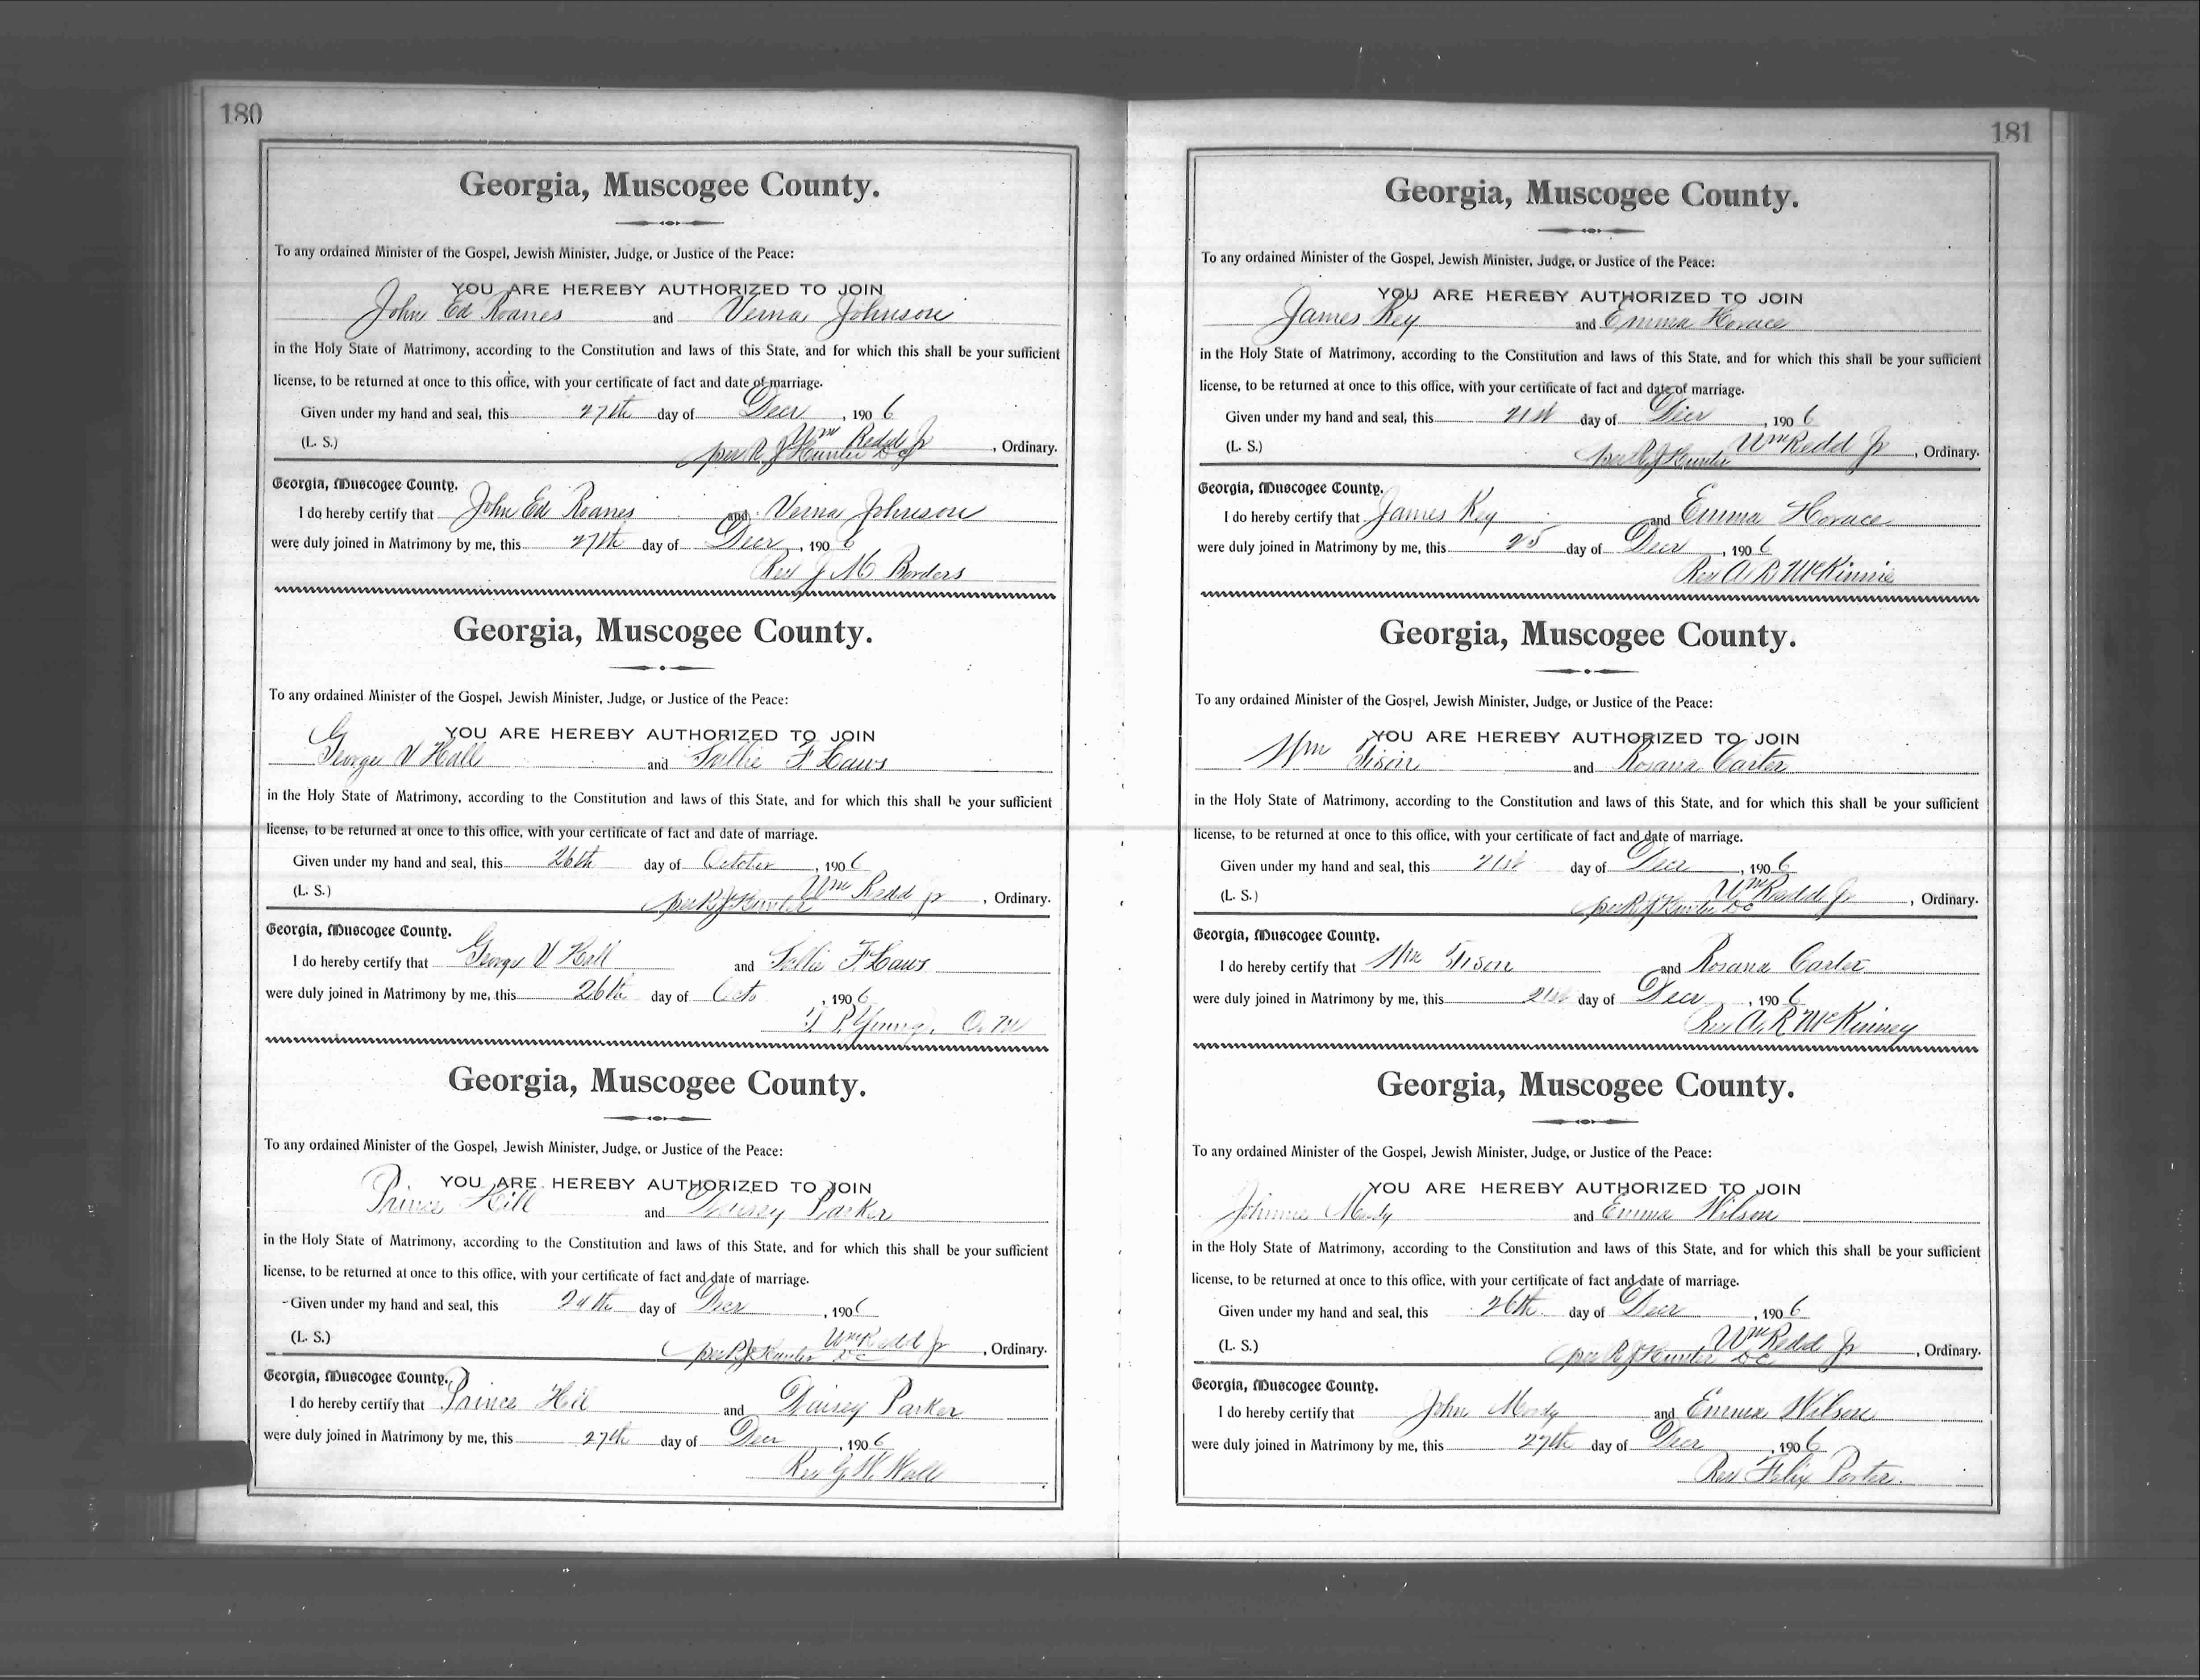 180
Georgia, Muscogee County.
To any ordained Minister of the Gospel, Jewish Minister, Judge, or Justice of the Peace:
YOU ARE HEREBY AUTHORIZED TO JOIN
John Ed Roanes and Verna Johnson
in the Holy State of Matrimony, according to the Constitution and laws of this State, and for which this shall be your sufficient
license, to be returned at once to this office, with your certificate of fact and date of marriage.
Given under my hand and seal, this 27th day of Decr, 1906
(L. S.) Wm Redd Jr, Ordinary.
per R J Hunter DC
Georgia, Muscogee County.
I do hereby certify that John Ed Roanes and Verna Johnson
were duly joined in Matrimony by me, this 27th day of Decr, 1906
Rev J M Borders
Georgia, Muscogee County.
To any ordained Minister of the Gospel, Jewish Minister, Judge, or Justice of the Peace:
YOU ARE HEREBY AUTHORIZED TO JOIN
George V Hall and Sallie F. Laws
in the Holy State of Matrimony, according to the Constitution and laws of this State, and for which this shall be your sufficient
license, to be returned at once to this office, with your certificate of fact and date of marriage.
Given under my hand and seal, this 26th day of October, 1906
(L. S.) Wm Redd Jr, Ordinary.
per R J Hunter
Georgia, Muscogee County.
I do hereby certify that George V Hall and Sallie F. Laws
were duly joined in Matrimony by me, this 26th day of Octo, 1906
Young.
Georgia, Muscogee County.
To any ordained Minister of the Gospel, Jewish Minister, Judge, or Justice of the Peace:
YOU ARE HEREBY AUTHORIZED TO JOIN
Prince Hill and Parker
in the Holy State of Matrimony, according to the Constitution and laws of this State, and for which this shall be your sufficient
license, to be returned at once to this office, with your certificate of fact and date of marriage.
Given under my hand and seal, this 24th day of Decr, 1906
(L. S.) Wm Redd Jr, Ordinary.
per R J Hunter DC
Georgia, Muscogee County.
I do hereby certify that Prince Hill and Parker
were duly joined in Matrimony by me, this 27th day of Decr, 1906
Rev G. W. Wall
181
Georgia, Muscogee County.
To any ordained Minister of the Gospel, Jewish Minister, Judge, or Justice of the Peace:
YOU ARE HEREBY AUTHORIZED TO JOIN
James Key and Emma Horace
in the Holy State of Matrimony, according to the Constitution and laws of this State, and for which this shall be your sufficient
license, to be returned at once to this office, with your certificate of fact and date of marriage.
Given under my hand and seal, this 21st day of Decr, 1906
(L. S.) Wm Redd Jr, Ordinary.
per R J Hunter
Georgia, Muscogee County.
I do hereby certify that James Key and Emma Horace
were duly joined in Matrimony by me, this 25 day of Decr, 1906
Rev A. R McKinnie
Georgia, Muscogee County.
To any ordained Minister of the Gospel, Jewish Minister, Judge, or Justice of the Peace:
YOU ARE HEREBY AUTHORIZED TO JOIN
Wm Tison and Rosana Carter
in the Holy State of Matrimony, according to the Constitution and laws of this State, and for which this shall be your sufficient
license, to be returned at once to this office, with your certificate of fact and date of marriage.
Given under my hand and seal, this 21st day of Decr, 1906
(L. S.) Wm Redd Jr, Ordinary.
per R J Hunter DC
Georgia, Muscogee County.
I do hereby certify that Wm Tison and Rosana Carter
were duly joined in Matrimony by me, this 21st day of Decr, 1906
Rev A. R McKinney
Georgia, Muscogee County.
To any ordained Minister of the Gospel, Jewish Minister, Judge, or Justice of the Peace:
YOU ARE HEREBY AUTHORIZED TO JOIN
Johnnie Mosly and Emma Wilson
in the Holy State of Matrimony, according to the Constitution and laws of this State, and for which this shall be your sufficient
license, to be returned at once to this office, with your certificate of fact and date of marriage.
Given under my hand and seal, this 26th day of Decr, 1906
(L. S.) Wm Redd Jr, Ordinary.
per R J Hunter DC
Georgia, Muscogee County.
I do hereby certify that John Mosly and Emma Wilson
were duly joined in Matrimony by me, this 27th day of Decr, 1906
Rev Felix Porter.